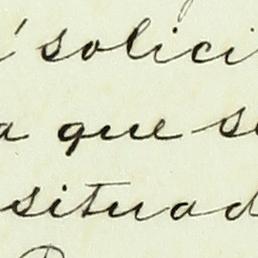 solici
a que se
situad